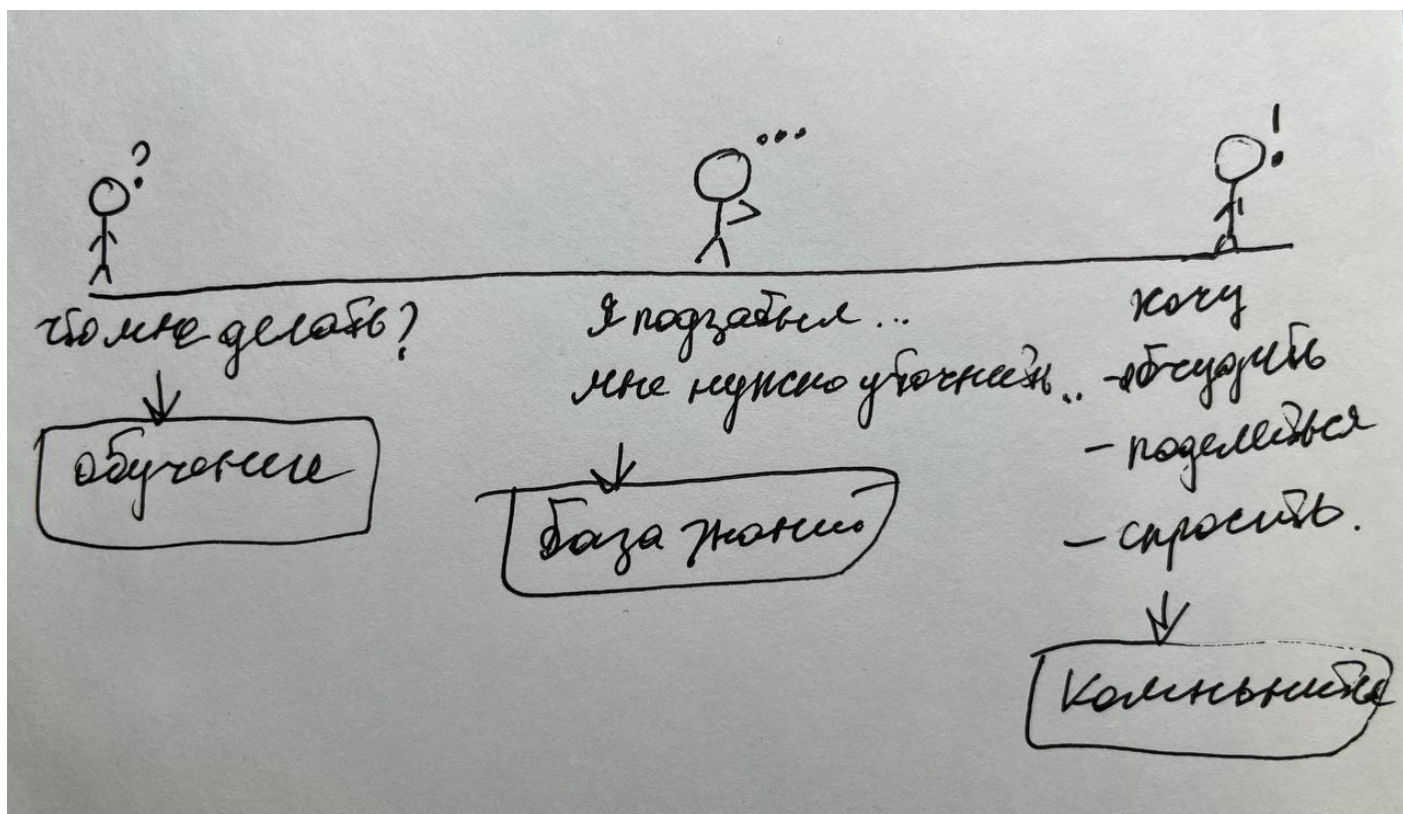 ?
...
!
что мне делать?
обучение
Я подзабыл...
мне нужно уточнить..
база знаний
хочу
- обсудить
- поделиться
- спросить.
комньюнити